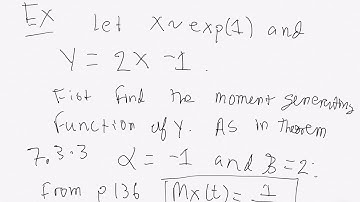 Ex Let X~exp(1) and
Y = 2X -1.
Fist find the moment generating
function of Y. As in theorem
7.3.3 α = -1 and B = 2:
From p136 Mx(t) = 1